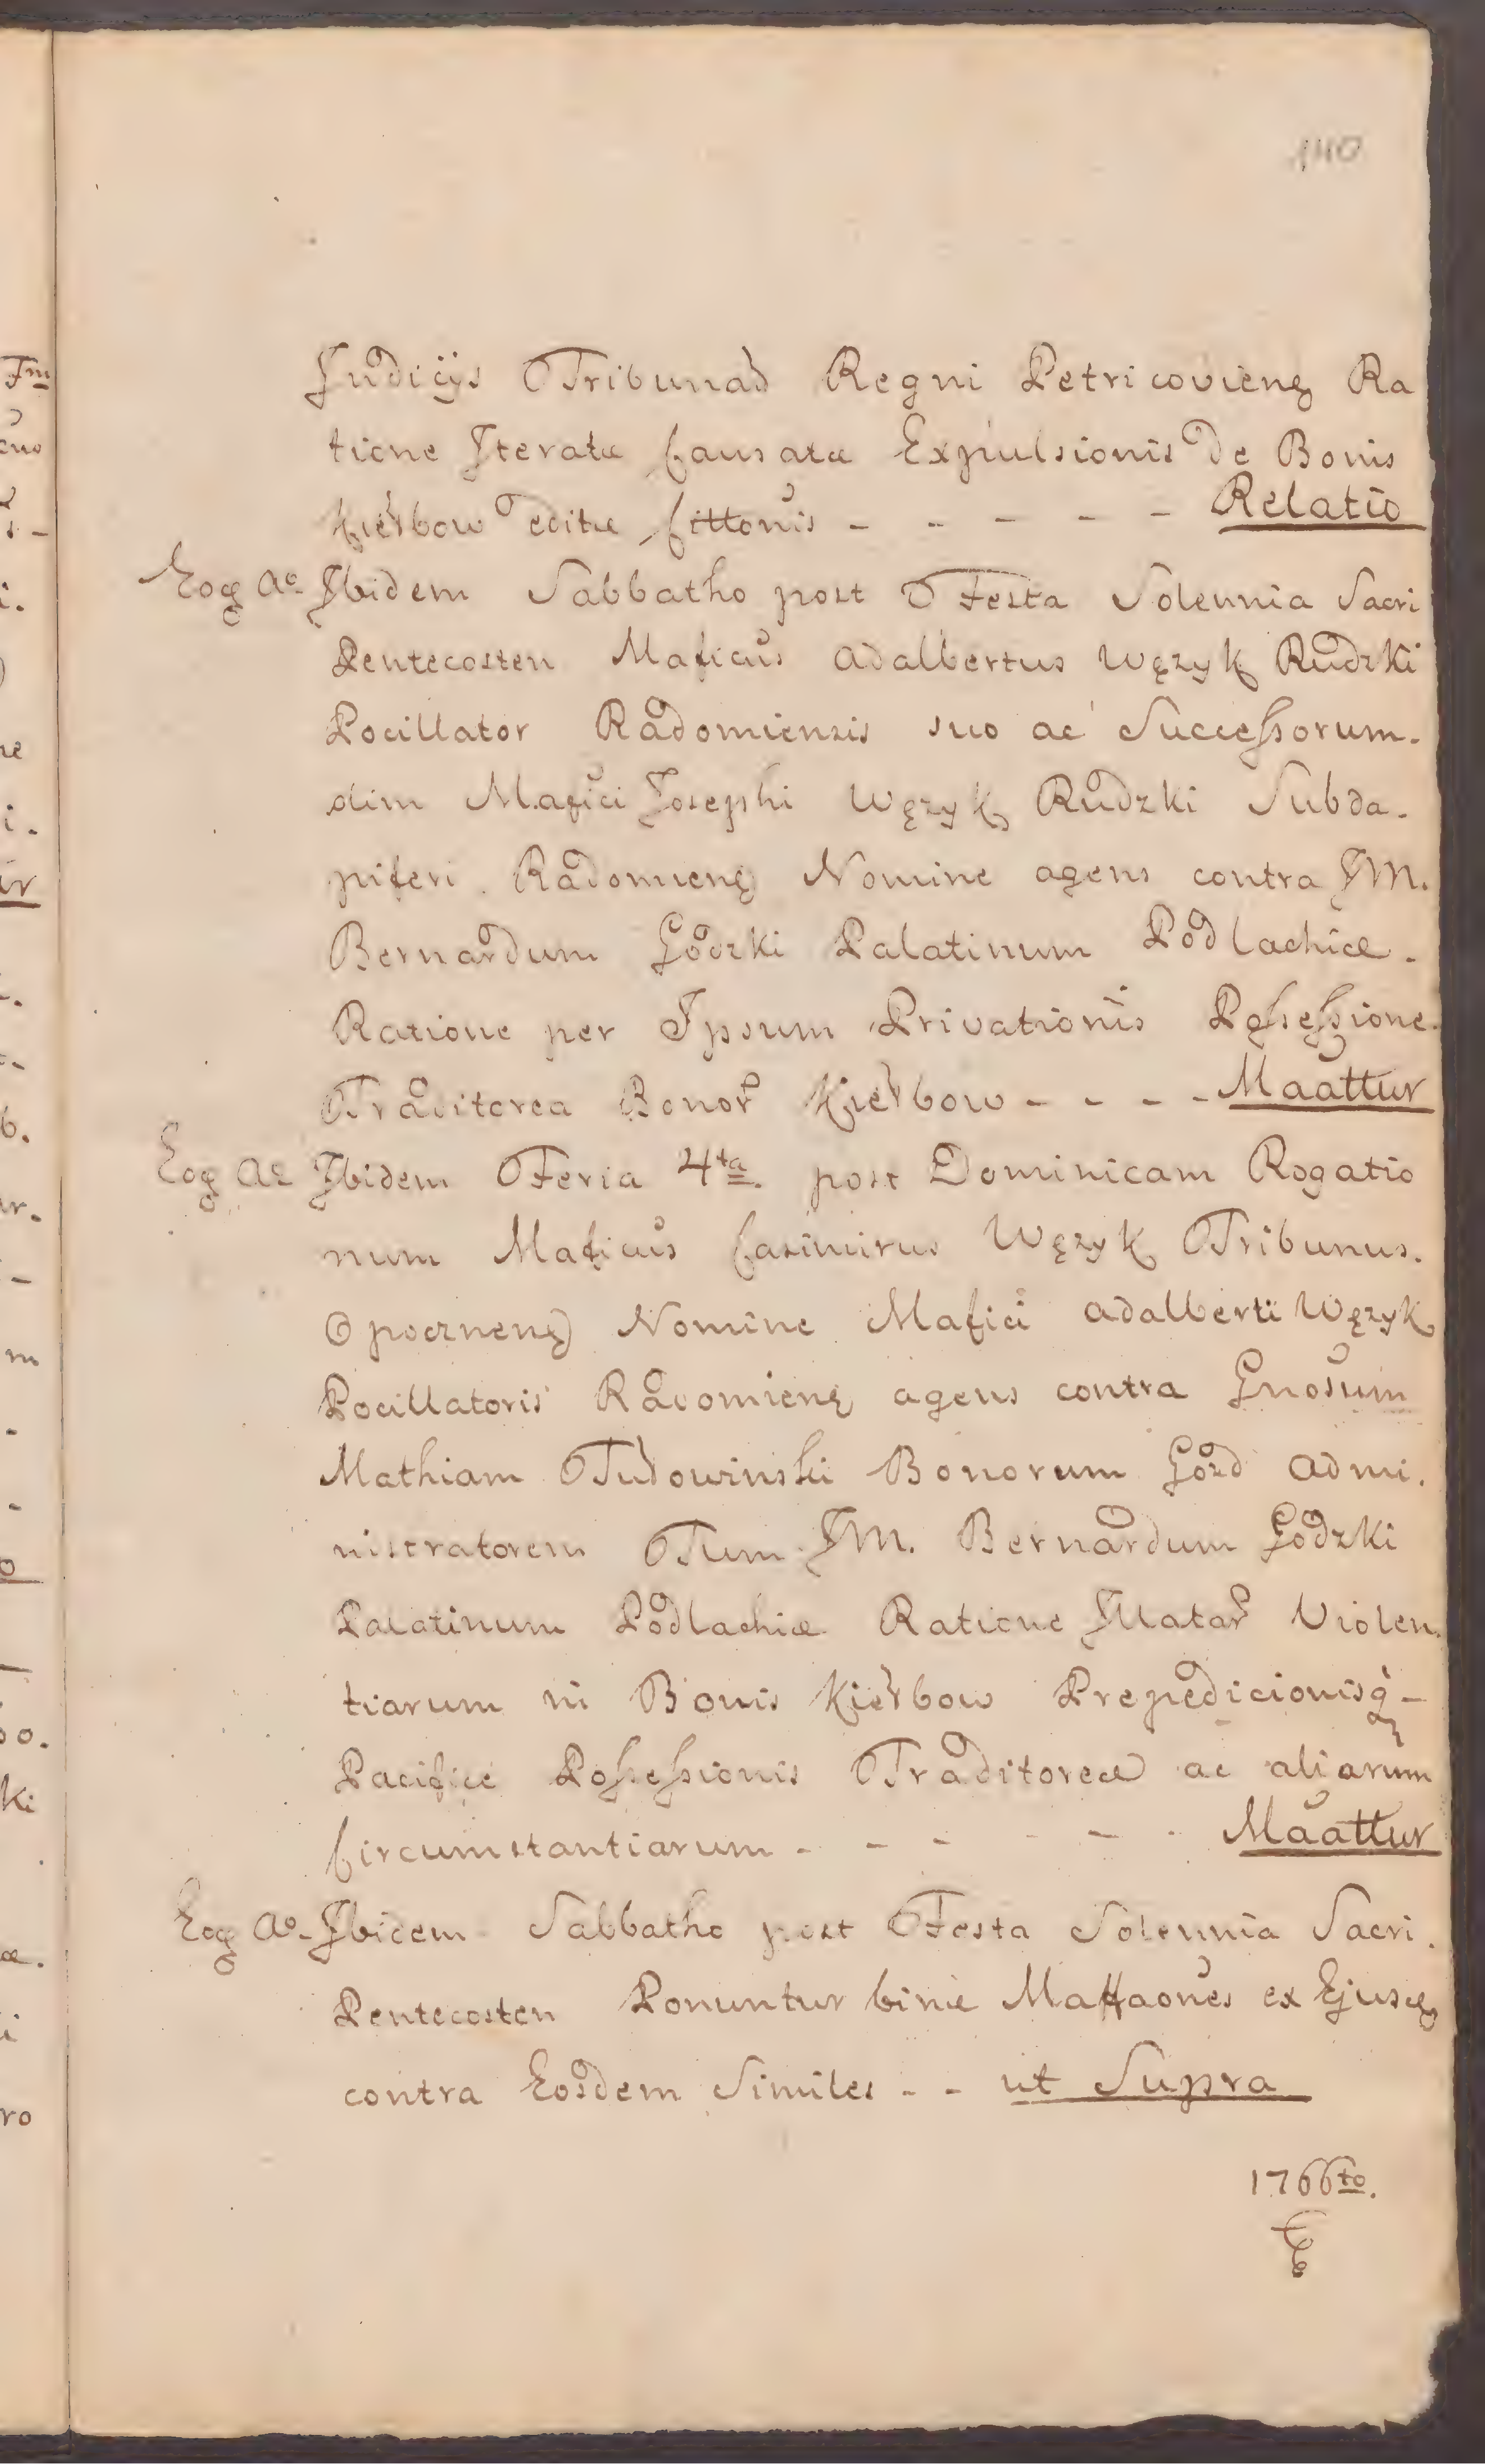 140
Judicijs Tribunad Regni Petricovieng Ra
tione Iteratæ Causatæ Expulsionis de Bonis
Kierbow editæ Cittonis - - - - - Relatio
Eog Ao Ibidem Sabbatho post Festa Solennia Sacri
Pentecosten Maficus Adalbertus Węzyk Rudzki
Pocillator Radomiensis suo ac Successorum.
olim Mafici Josephi Węzyk Rudzki Subda.
piferi Radomieng Nomine agens contra JM.
Bernardum Godzki Palatinum Podlachiæ.
Ratione per Ipsum Privationis Possessione
Traditorea Bonor Kierbow - - - - Maattur
Eog Ao Ibidem Feria 4ta. post Dominicam Rogatio
num Maficus Casimirus Węzyk Tribunus.
Opoczneng Nomine Mafici Adalberti Węzyk
Pocillatoris Radomieng agens contra Gnosum
Mathiam Tudowinski Bonorum Gozd Admi.
nistratorem Tum JM. Bernardum Godzki
Palatinum Podlachiæ Ratione Illatar Violen.
tiarum in Bonis Kierbow Prepedicionisq -
Pacifice Possessionis Traditoreæ ac aliarum
Circumstantiarum - - - - - - Maattur
Eog Ao Ibidem Sabbatho post Festa Solennia Sacri.
Pentecosten Ponuntur binæ Maffaones ex Ejusdg
contra Eosdem Similes - - ut Supra
1766to.